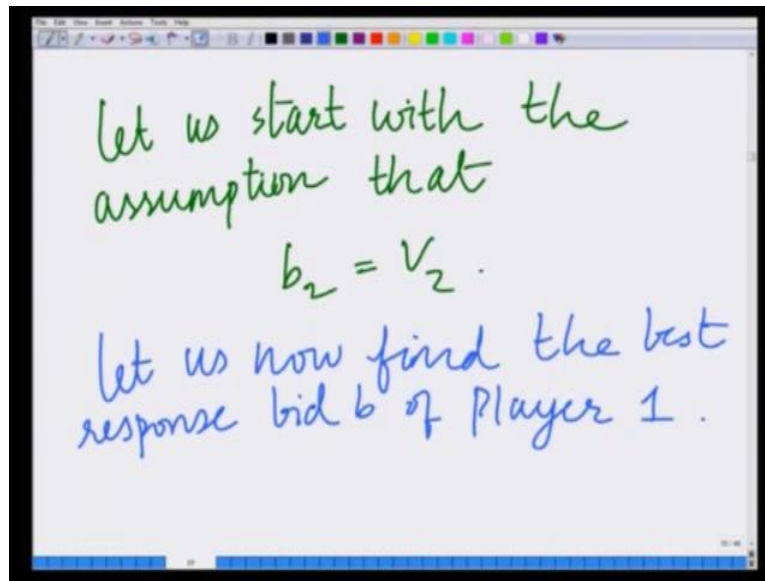 File Edit View Insert Actions Tools Help
let us start with the
assumption that
b₂ = V₂ .
let us now find the best
response bid b of Player 1 .